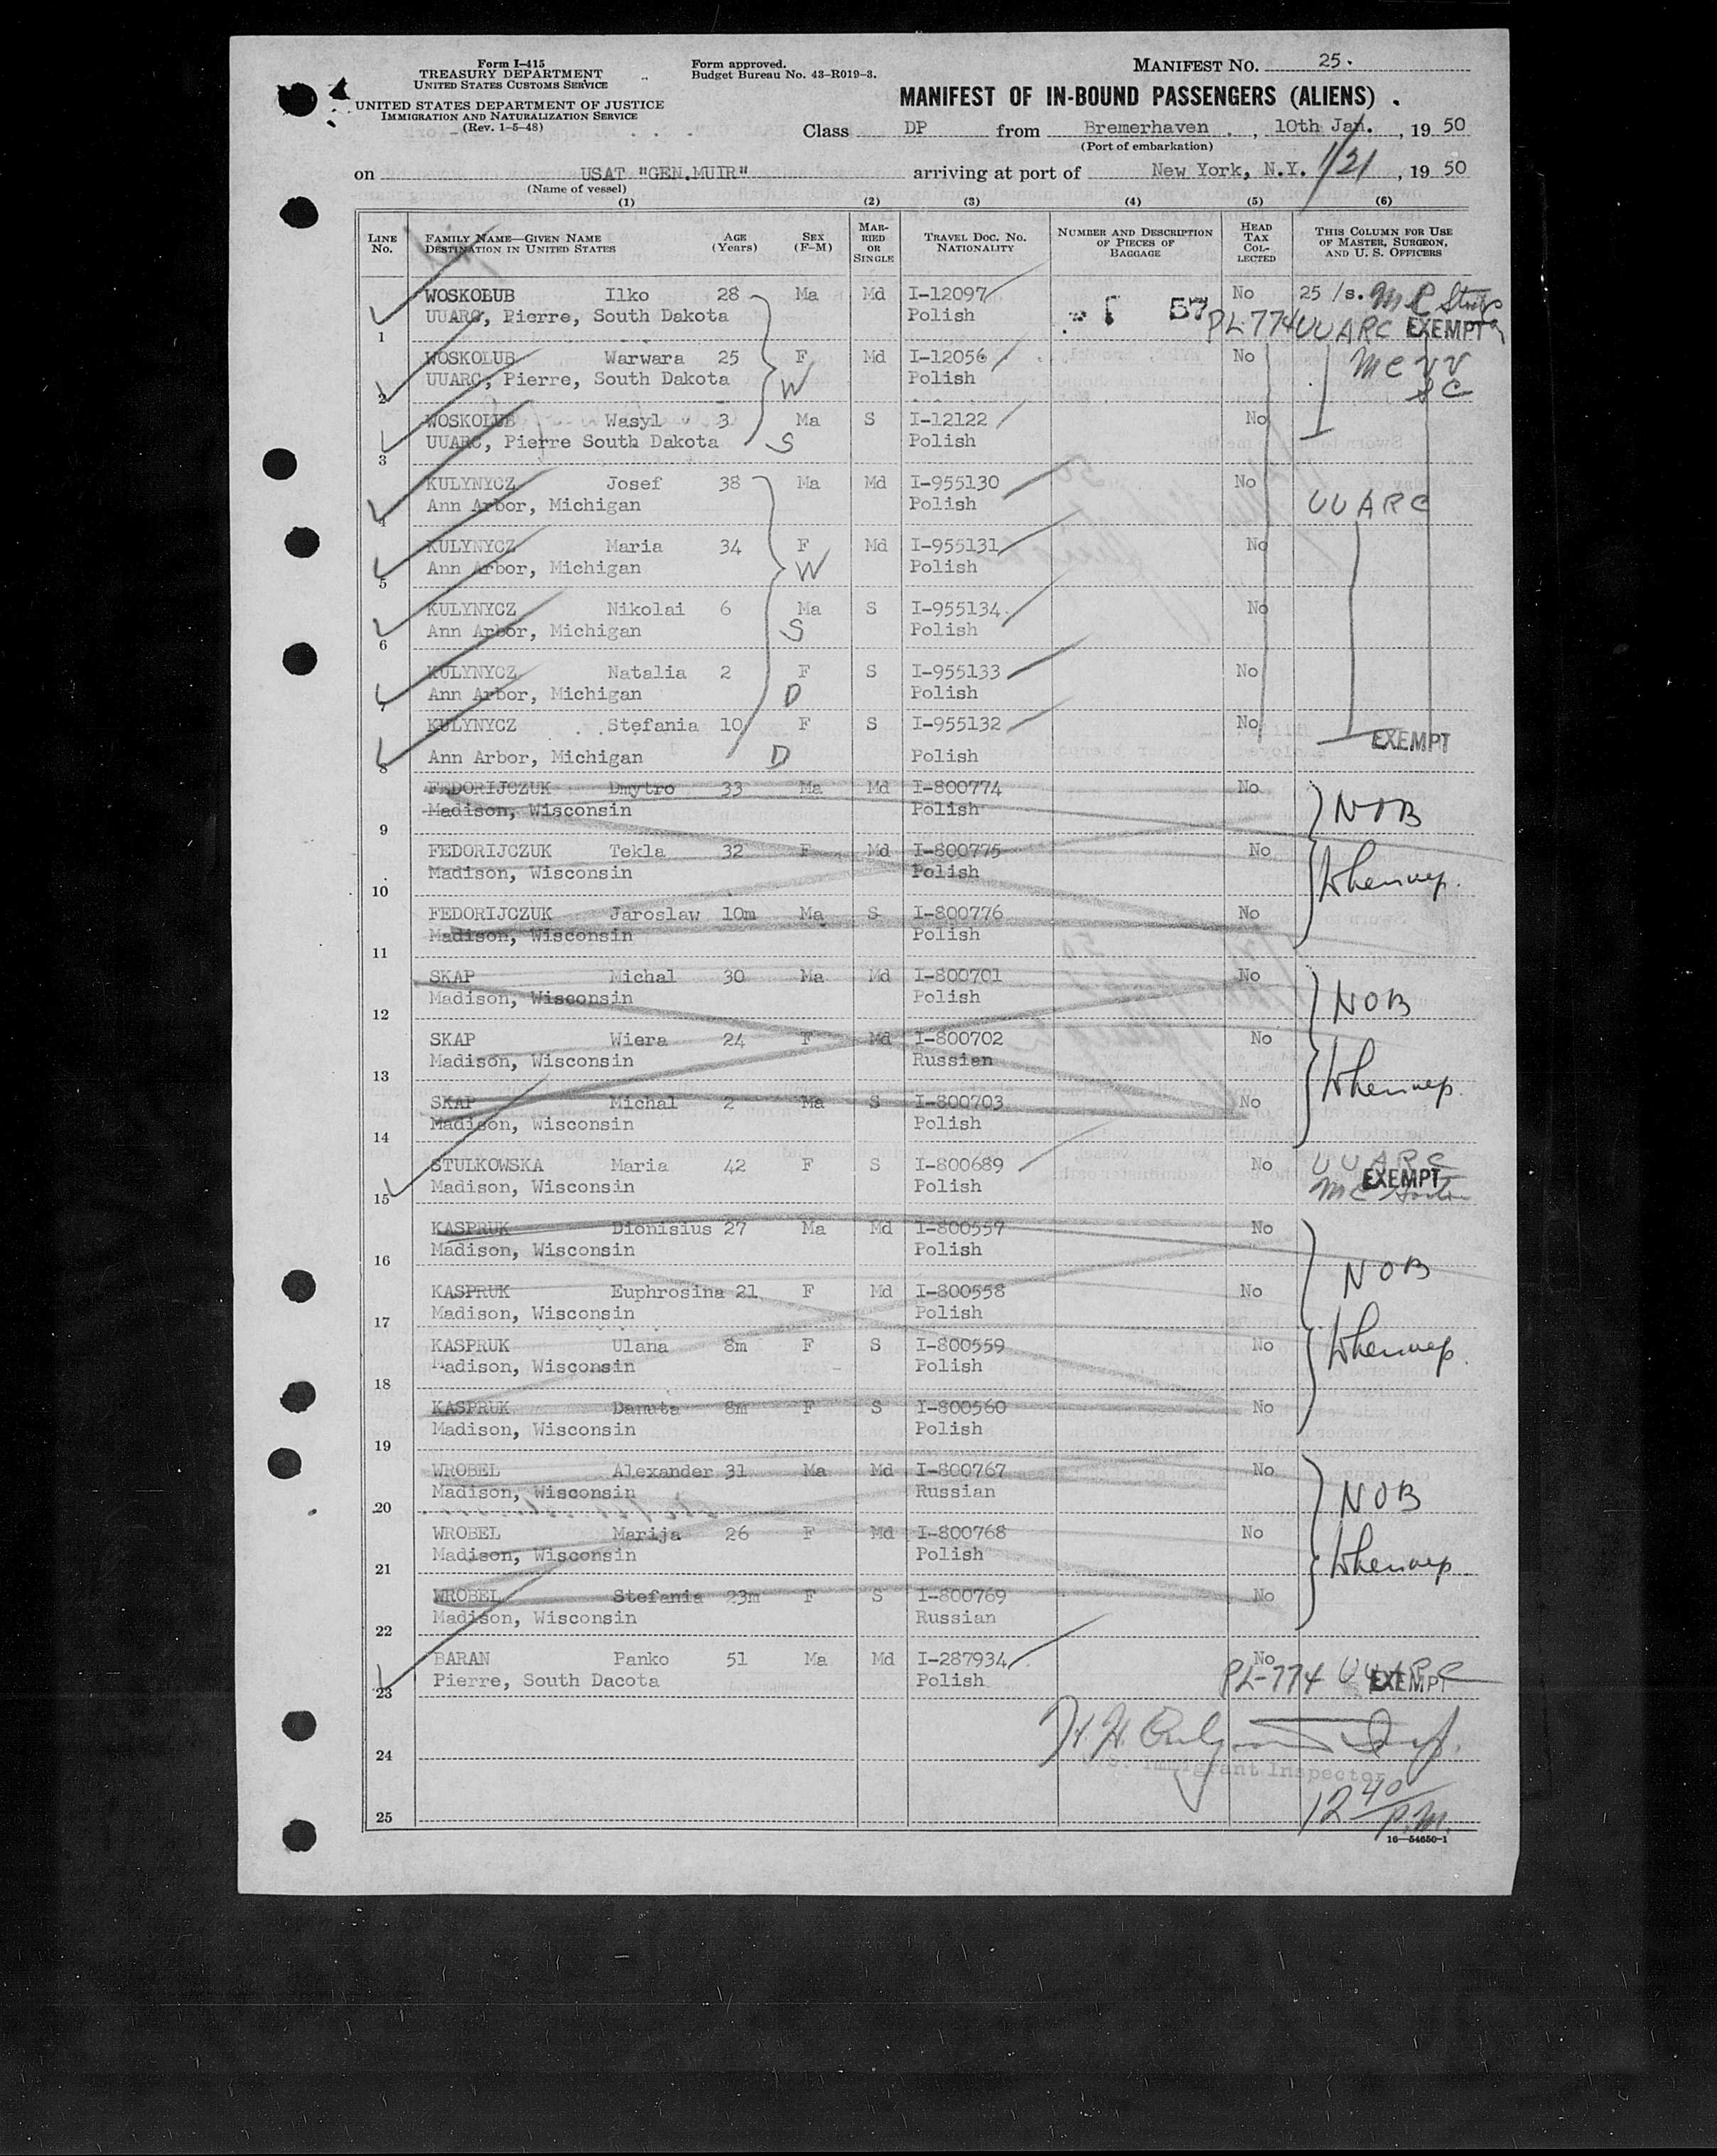 Form I-415
TREASURY DEPARTMENT
UNITED STATES CUSTOMS SERVICE
UNITED STATES DEPARTMENT OF JUSTICE
IMMIGRATION AND NATURALIZATION SERVICE
(Rev. 1-5-48)
Form approved.
Budget Bureau No. 43-R019-3.
MANIFEST NO. 25.
MANIFEST OF IN-BOUND PASSENGERS (ALIENS)
Class DP from Bremerhaven, 10th Jan., 19 50
(Port of embarkation)
on USAT "GEN.MUIR" arriving at port of New York, N.Y. 1/21, 19 50
(Name of vessel)
(1) (2) (3) (4) (5) (6)
LINE NO. FAMILY NAME—GIVEN NAME DESTINATION IN UNITED STATES AGE (Years) SEX (F-M) MARRIED OR SINGLE TRAVEL DOC. NO. NATIONALITY NUMBER AND DESCRIPTION OF PIECES OF BAGGAGE HEAD TAX COLLECTED THIS COLUMN FOR USE OF MASTER, SURGEON, AND U. S. OFFICERS
WOSKOLUB Ilko 28 Ma Md I-12097 No 25 /s.
1 UUARC, Pierre, South Dakota Polish 57 PL-774 UUARC EXEMPT
WOSKOLUB Warwara 25 F Md I-12056 No
2 UUARC, Pierre, South Dakota W Polish
WOSKOLUB Wasyl 3 Ma S I-12122 No
3 UUARC, Pierre South Dakota S Polish
KULYNYCZ Josef 38 Ma Md I-955130 No
4 Ann Arbor, Michigan Polish UUARC
KULYNYCZ Maria 34 F Md I-955131 No
5 Ann Arbor, Michigan W Polish
KULYNYCZ Nikolai 6 Ma S I-955134 No
6 Ann Arbor, Michigan S Polish
KULYNYCZ Natalia 2 F S I-955133 No
7 Ann Arbor, Michigan D Polish
KULYNYCZ Stefania 10 F S I-955132 No EXEMPT
8 Ann Arbor, Michigan D Polish
FEDORIJCZUK Dmytro 33 Ma Md I-800774 No NOB
9 Madison, Wisconsin Polish
FEDORIJCZUK Tekla 32 F Md I-800775 No
10 Madison, Wisconsin Polish
FEDORIJCZUK Jaroslaw 10m Ma S I-800776 No
11 Madison, Wisconsin Polish
SKAP Michal 30 Ma Md I-800701 No NOB
12 Madison, Wisconsin Polish
SKAP Wiera 24 F Md I-800702 No
13 Madison, Wisconsin Russian
SKAP Michal 2 Ma S I-800703 No
14 Madison, Wisconsin Polish
STULKOWSKA Maria 42 F S I-800689 No UUARC
15 Madison, Wisconsin Polish EXEMPT
KASPRUK Dionisius 27 Ma Md I-800557 No
16 Madison, Wisconsin Polish NOB
KASPRUK Euphrosina 21 F Md I-800558 No
17 Madison, Wisconsin Polish
KASPRUK Ulana 8m F S I-800559 No
18 Madison, Wisconsin Polish
KASPRUK Danuta 8m F S I-800560 No
19 Madison, Wisconsin Polish
WROBEL Alexander 31 Ma Md I-800767 No
20 Madison, Wisconsin Russian NOB
WROBEL Marija 26 F Md I-800768 No
21 Madison, Wisconsin Polish
WROBEL Stefania 23m F S I-800769 No
22 Madison, Wisconsin Russian
BARAN Panko 51 Ma Md I-287934 No
23 Pierre, South Dacota Polish PL-774 UUARC EXEMPT
24
Immigrant Inspector
25 12 40 P.M.
16—54650-1